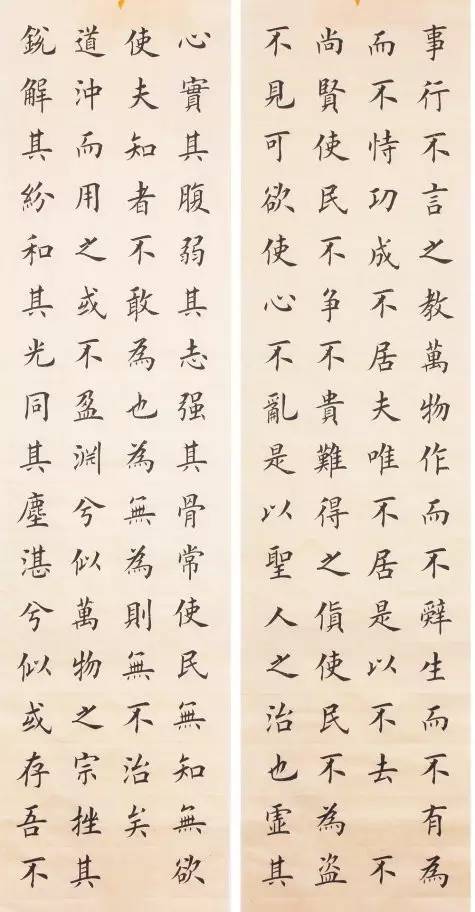 事行不言之教萬物作而不辤生而不有為
而不恃功成不居夫唯不居是以不去 不
尚賢使民不争不貴難得之貨使民不為盜
不見可欲使心不亂是以聖人之治也虛其
心實其腹弱其志强其骨常使民無知無欲
使夫知者不敢為也為無為則無不治矣
道沖而用之或不盈淵兮似萬物之宗挫其
銳解其紛和其光同其塵湛兮似或存吾不